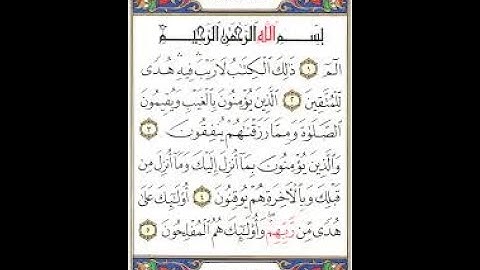 بِسْمِ اللَّهِ الرَّحْمَٰنِ الرَّحِيمِ
الٓمٓ ١ ذَٰلِكَ الْكِتَابُ لَا رَيْبَ فِيهِ هُدًى
لِّلْمُتَّقِينَ ٢ الَّذِينَ يُؤْمِنُونَ بِالْغَيْبِ وَيُقِيمُونَ
الصَّلَاةَ وَمِمَّا رَزَقْنَاهُمْ يُنفِقُونَ ٣
وَالَّذِينَ يُؤْمِنُونَ بِمَا أُنزِلَ إِلَيْكَ وَمَا أُنزِلَ مِن
قَبْلِكَ وَبِالْآخِرَةِ هُمْ يُوقِنُونَ ٤ أُولَٰئِكَ عَلَىٰ
هُدًى مِّن رَّبِّهِمْ وَأُولَٰئِكَ هُمُ الْمُفْلِحُونَ ٥